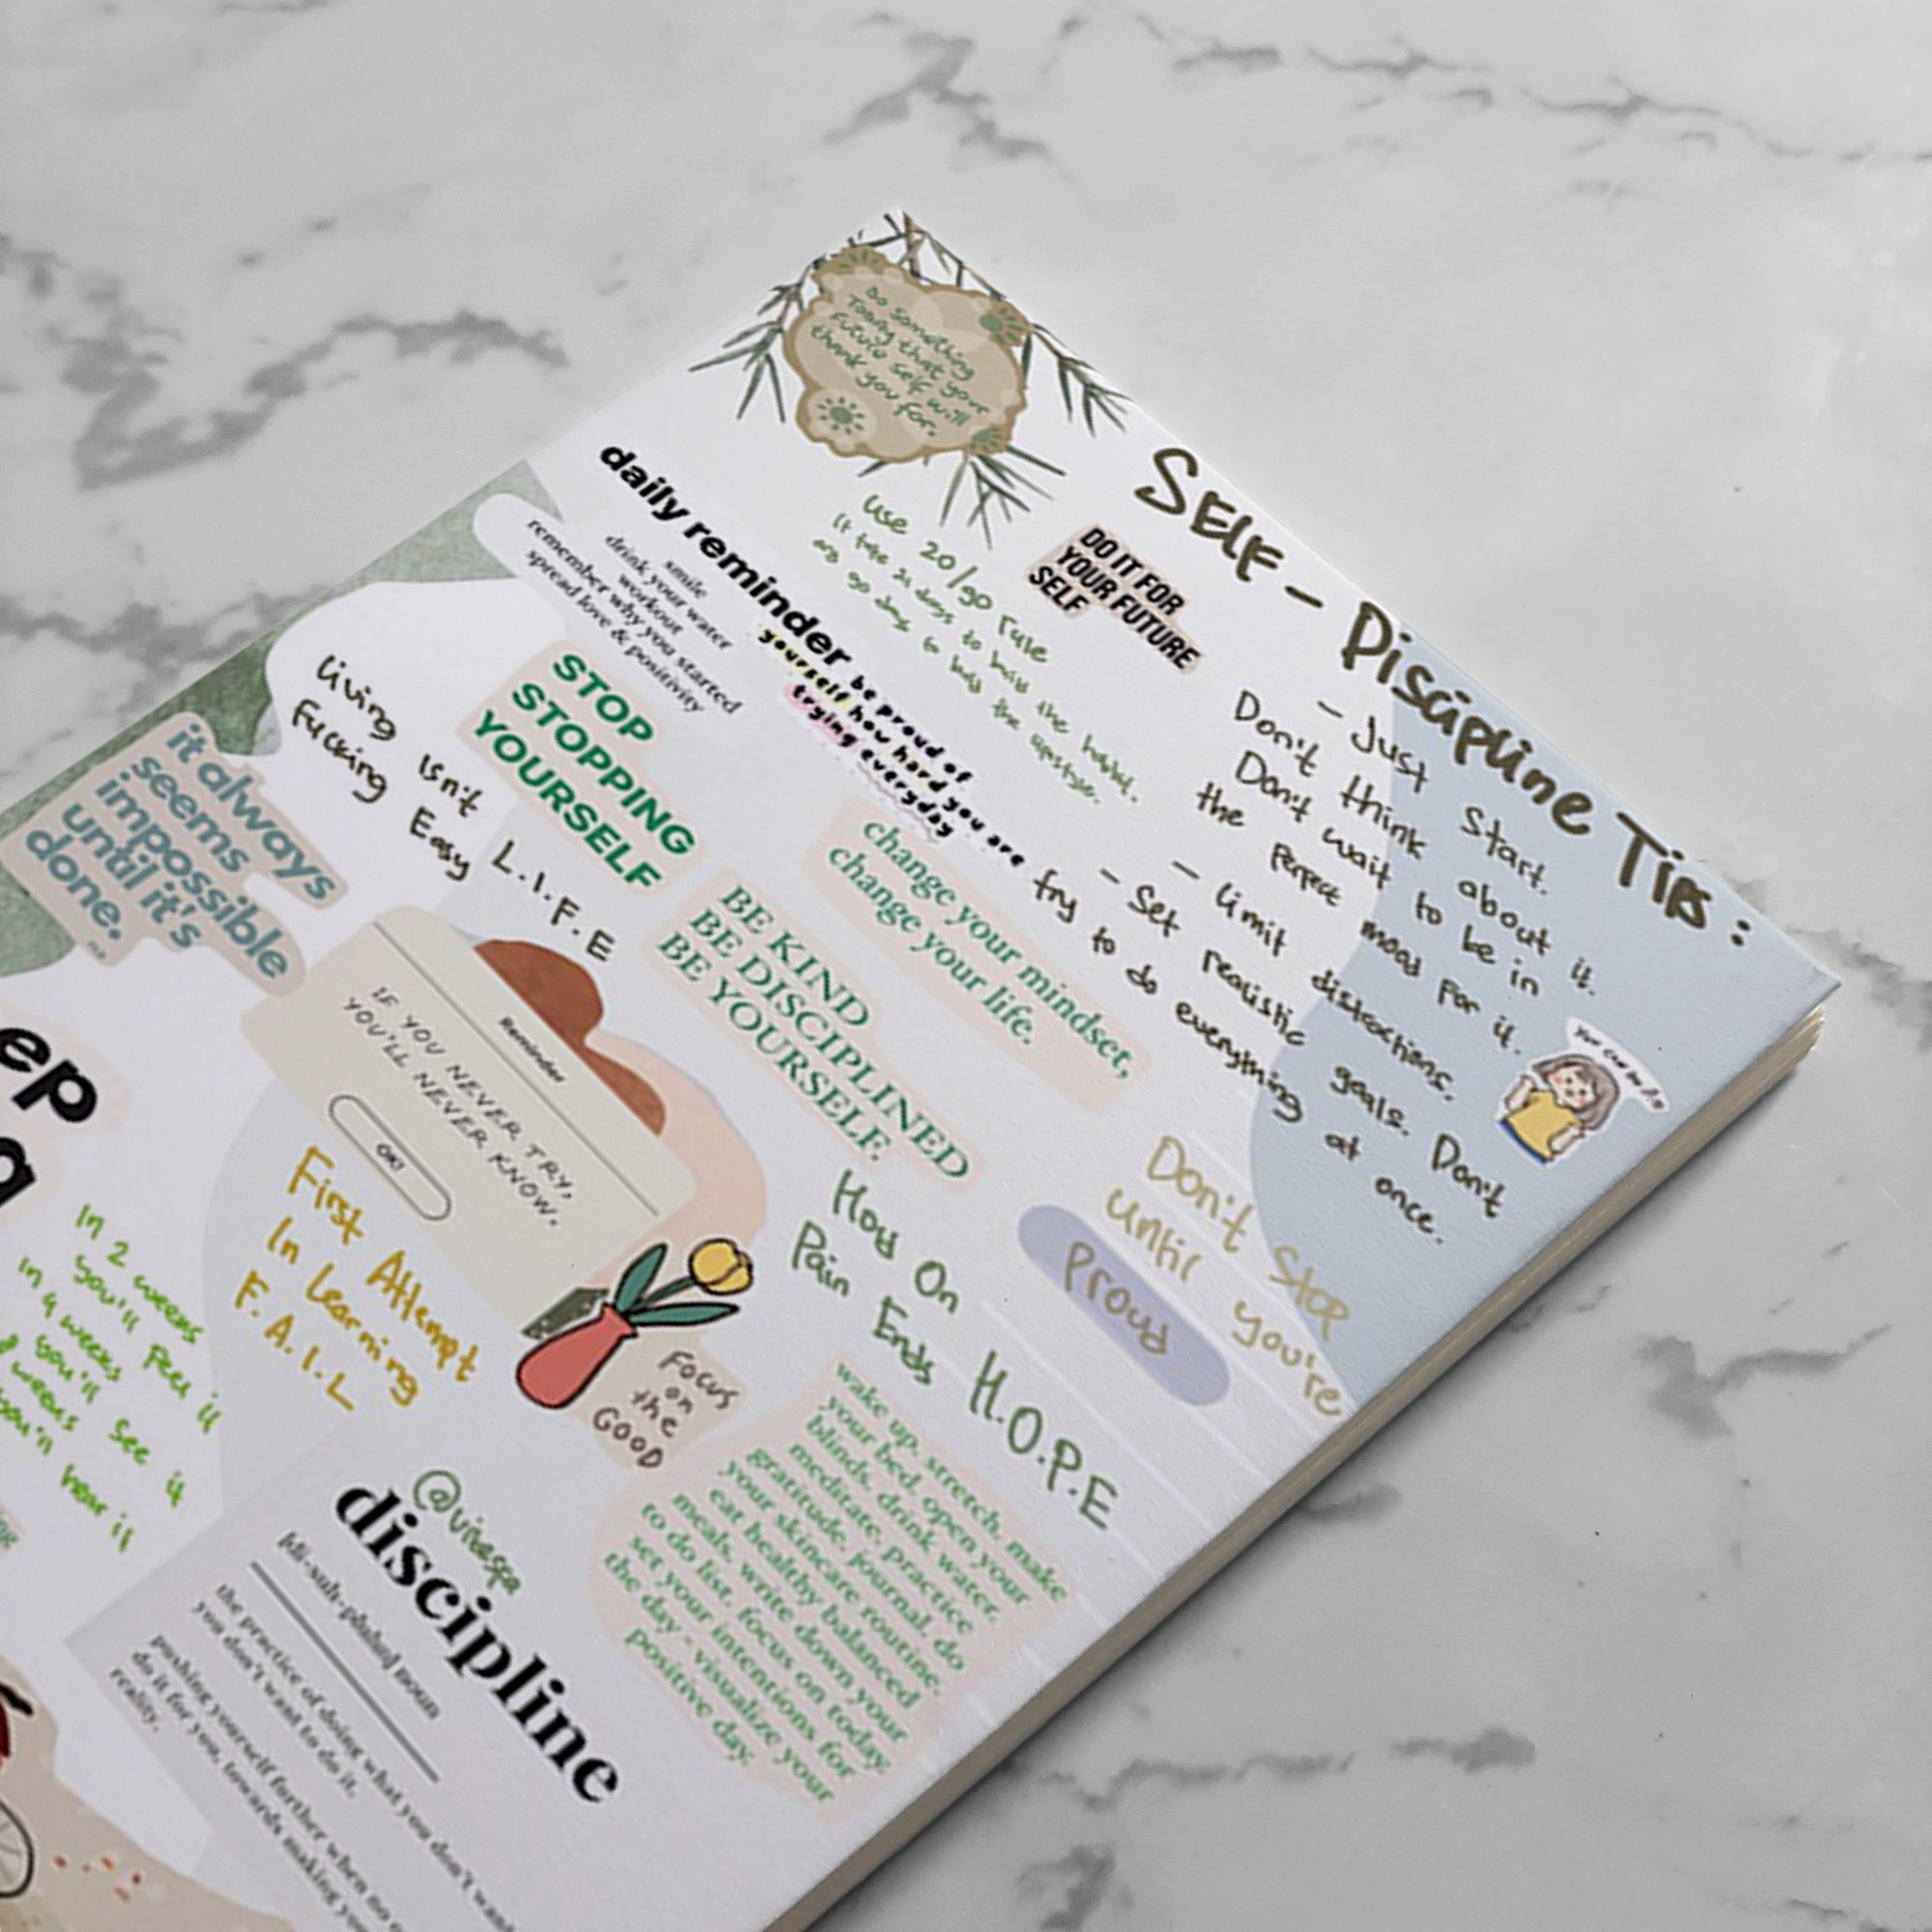 Do something
Today that your
Future self will
thank you for.
SELF - Discipline Tips :
- Just Start.
Don't think about it.
Don't wait to be in
the perfect mood for it.
- limit distractions.
- Set realistic goals. Don't
try to do everything at once.
DO IT FOR
YOUR FUTURE
SELF
use 20/90 rule
It take 21 days to build the habbit.
90 day to build the
daily reminder
smile
drink your water
workout
remember why you started
spread love & positivity
be proud of
yourself how hard you are
trying everyday
STOP
STOPPING
YOURSELF
living isn't
Fucking Easy L.I.F.E
it always
seems
impossible
until it's
done.
change your mindset,
change your life.
BE KIND
BE DISCIPLINED
BE YOURSELF.
Reminder
IF YOU NEVER TRY,
YOU'LL NEVER KNOW.
OK!
Don't Stop
until you're
Proud
Hold On
Pain Ends H.O.P.E
First Attempt
In Learning
F.A.I.L
Focus
on
the
GOOD
ep
g
In 2 weeks
you'll Feel it
In 4 weeks
you'll see it
8 weeks
you'll hear it
wake up, stretch, make
your bed, open your
blinds, drink water,
meditate, practice
gratitude, journal, do
your skincare routine,
eat healthy balanced
meals, write down your
to do list, focus on today,
set your intentions for
the day - visualize your
positive day.
discipline
[di-suh-pluhn] noun
the practice of doing what you don't want
you don't want to do it.
pushing yourself further when no
do it for you, towards making you
reality.